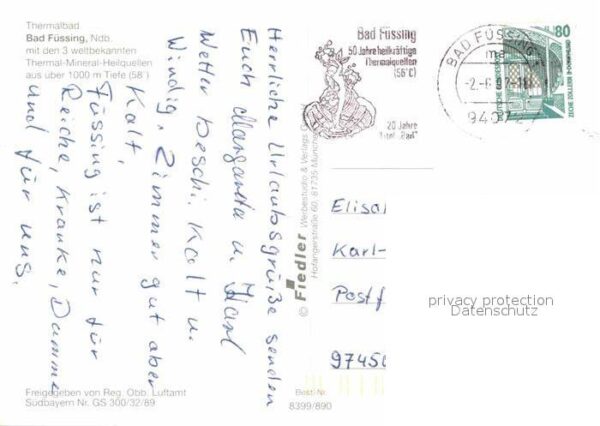 Thermalbad
Bad Füssing, Ndb.
mit den 3 weltbekannten
Thermal-Mineral-Heilquellen
aus über 1000 m Tiefe (58°)
Herrliche Urlaubsgrüße senden
Euch Margareta u. Karl
Wetter beschi. Kalt u.
Windig. Zimmer gut aber
Kalt,
Füssing ist nur für
Reiche, Kranke, Dumme
und für uns.
Freigegeben von Reg. Obb. Luftamt
Südbayern Nr. GS 300/32/89
© Fiedler Werbestudio & Verlags GmbH
Hofangerstraße 60, 81735 München
Best-Nr.
8399/890
Bad Füssing
50 Jahre heilkräftige
Thermalquellen
(56°C)
20 Jahre
"Bad"
BAD FÜSSING
ma
94072
80
DEUTSCHE BUNDESPOST
ZECHE ZOLLERN II · DORTMUND
Elisa
Karl-
Postf
privacy protection
Datenschutz
9745